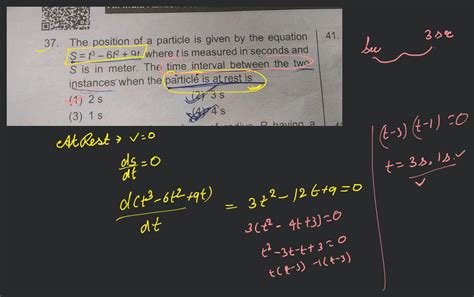 37. The position of a particle is given by the equation
S = t³ – 6t² + 9t where t is measured in seconds and
S is in meter. The time interval between the two
instances when the particle is at rest is
(1) 2 s (2) 3 s
(3) 1 s (4) 4 s
41.
3 sec
At Rest → v=0
ds/dt = 0
d(t³-6t²+9t)/dt = 3t²-12t+9=0
3(t²-4t+3)=0
t²-3t-t+3=0
t(t-3) -1(t-3)
(t-3)(t-1)=0
t = 3s, 1s.